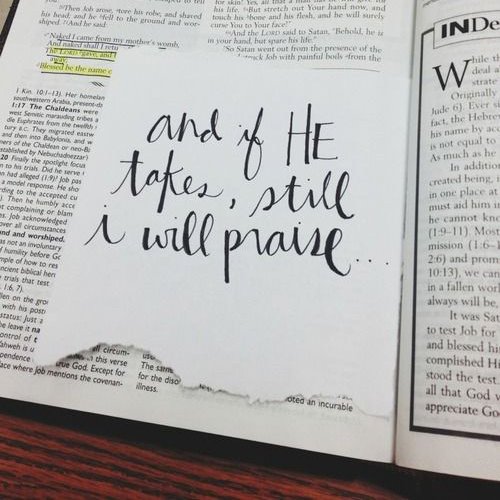 20Then Job arose, tore his robe, and shaved
his head; and he fell to the ground and wor-
shiped. 21And he said:
"Naked I came from my mother's womb,
And naked shall I retu
The LORD gave, and t
away;
Blessed be the name o
his life. But stretch out Your hand now, and
touch his bone and his flesh, and he will surely
curse You to Your face!"
And the LORD said to Satan, "Behold, he is
in your hand, but spare his life."
So Satan went out from the presence of the
struck Job with painful boils from the
1 Kin. 10:1–13). Her homelan
southwestern Arabia, present-da
1:17 The Chaldeans were
west Semitic marauding tribes a
dle Euphrates from the twelfth t
tury B.C. They migrated eastw
and then into Babylonia, and w
ers of the Chaldean or neo-B
established by Nebuchadnezzar)
20 Finally the spotlight focus
n to his trials. Did he serve
n had alleged (1:9)? Job pas
a model response. He sho
rding to the accepted cu
). Then he humbly acce
t complaining or blam
es. Job acknowledged
over all circumstances
and worshiped,
was not an involuntary
f humility before Go
mple of how to res
ncient biblical her
trials that test
1:6, 7).
llen on the grou
with his posit
status: Just a
be leave it na
ontrol of t
Yahweh is u
pendence
ace where Job mentions the covenan-
circum-
this verse
true God. Except for
use
The same
for the diso
illness.
oted an incurable
and if HE
takes, still
i will praise...
INDe
While th
deal a
strate
Originally
Jude 6). Ever
fact, the Hebre
his name by ac
is not equal to
As much as he
In addition
created being, i
in one place at
must aid him in
he cannot kno
(1:9–11). Most
mission (1:6–
2:6) and prom
10:13), we can
in a fallen worl
always will be,
It was Sat
to test Job for
and blessed hi
complished Hi
stood the test
all that God w
appreciate Go